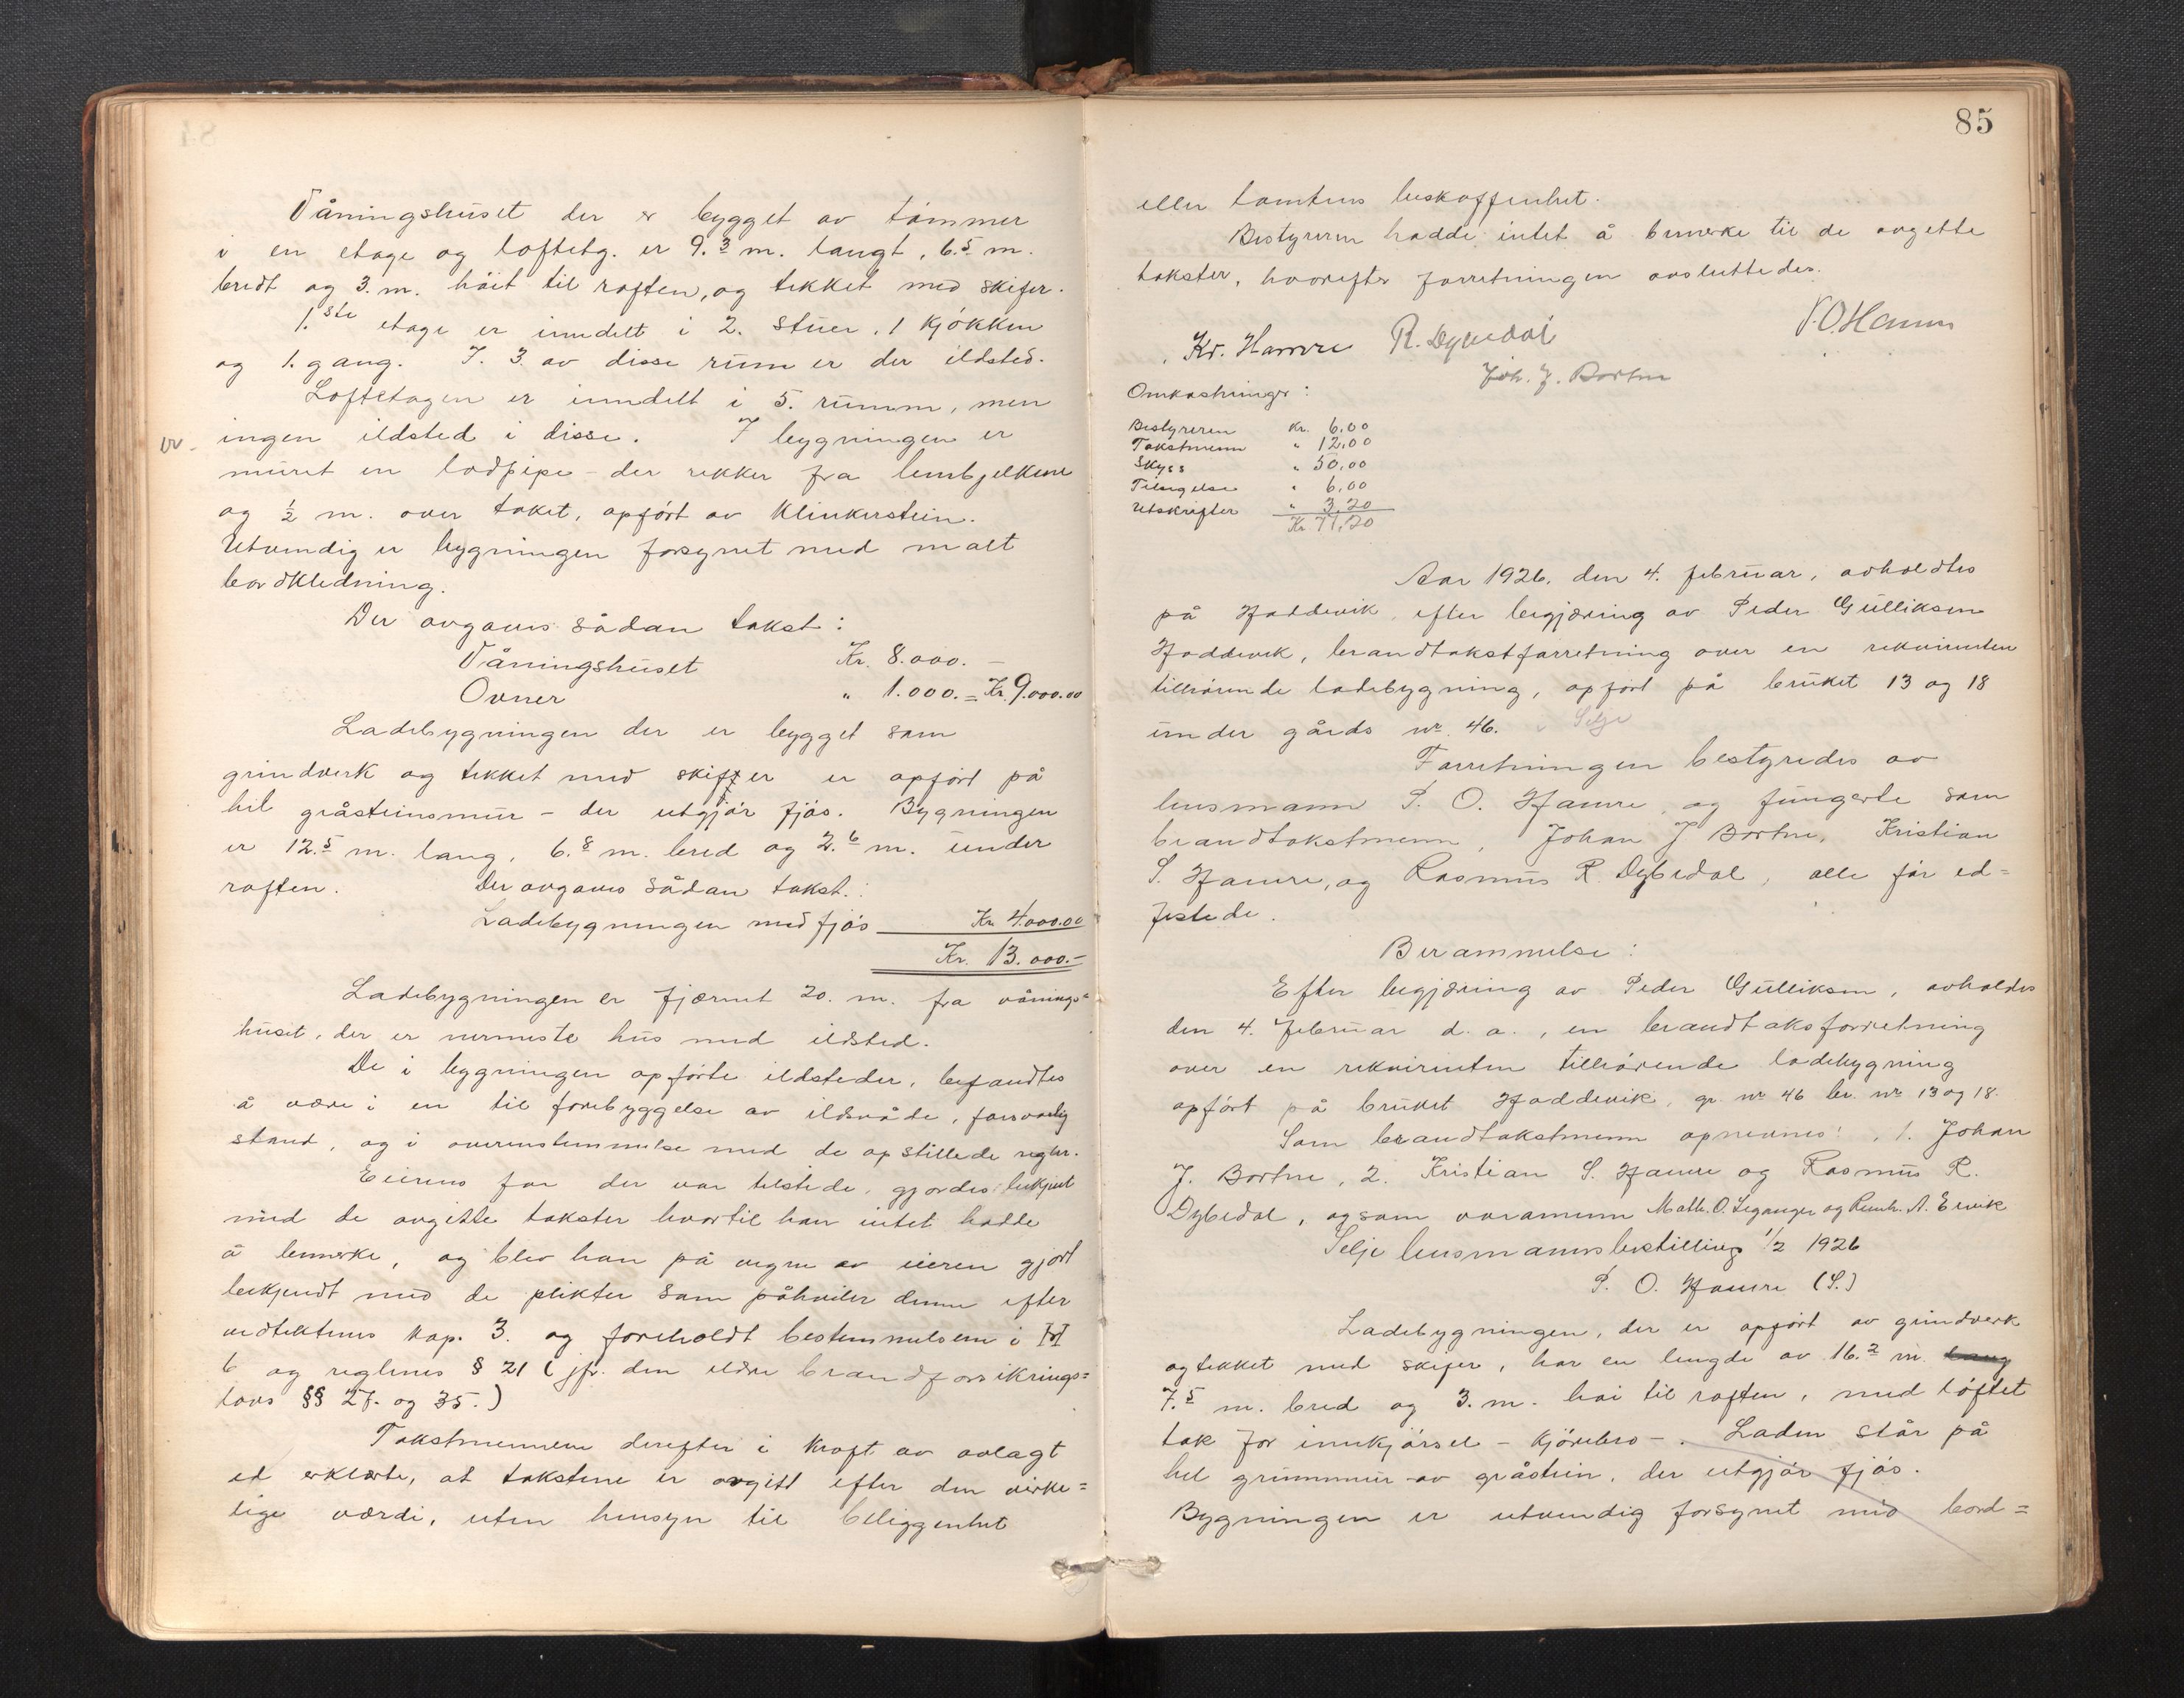 Våningshuset der er bygget av tømmer
i en etage og loftetg. er 9.3 m. langt, 6.5 m.
bredt og 3. m. høit til raften, og tekket med skifer.
1.ste etage er inndelt i 2. stuer, 1 kjøkken
og 1. gang. I. 3. av disse rum er der ildsted.
Loftetagen er inndelt i 5. rumm, men
ingen ildsted i disse. I bygningen er
muret en lodpipe - der rekker fra lembjelkene
og ½ m. over taket, opført av Klinkerstein.
Utvendig er bygningen forsynet med malt
bordkledning.
Der avgaves sådan takst:
Våningshuset Kr. 8.000. -
Ovner " 1.000. = Kr. 9.000.00
Ladebygningen der er bygget som
grindverk og tekket med skiffer er opført på
hel gråsteinsmur - der utgjør fjøs. Bygningen
er 12.5 m. lang, 6.8 m. bred og 2.6 m. under
raften. Der avgaves sådan takst.:
Ladebygningen med fjøs Kr. 4.000.00
Kr. 13.000.-
Ladebygningen er fjærnet 20. m. fra vånings=
huset, der er nermeste hus med ildsted.
De i bygningen opførte ildsteder, befandtes
å være i en til forebyggelse av ildsvåde, forsvarlig
stand, og i overenstemmelse med de opstillede regler.
Eierens far der var tilstede, gjordes bekjent
med de avgitte takster hvortil han intet hadde
å bemerke, og blev han på vegne av eieren gjort
bekjendt med de plikter som påhviler denne efter
vedtektenes kap. 3. og foreholdt bestemmelsene i
6 og reglenes § 21 (jfr. den eldre brandforsikrings=
lovs §§ 27. og 35.)
Takstmennene derefter i kraft av avlagt
ed erklærte, at takstene er avgitt efter den virke=
lige værdi, uten hensyn til beliggenhet
85
eller tomtens beskaffenhet.
Bestyreren hadde intet å bemerke til de avgitte
takster, hvorefter forretningen avsluttedes.
P. O. Hamre
Kr. Hamre R. Dybedal
Joh. J. Bortne
Omkostninger:
Bestyreren Kr. 6.00
Takstmenn " 12.00
Skyss " 50.00
Tilsigelse " 6.00
Utskrifter " 3.20
Kr. 77.20
Aar 1926. den 4. februar, avholdtes
på Hoddevik, efter begjæring av Peder Gulliksen
Hoddevik, brandtakstforretning over en rekvirenten
tilhørende ladebygning, opført på bruket 13 og 18
under gårds nr. 46. i Selje
Forretningen bestyredes av
lensmann P. O. Hamre, og fungerte som
brandtakstmenn, Johan J Bortne, Kristian
S. Hamre, og Rasmus R. Dybedal, alle før ed=
festede.
Berammelse:
Efter begjæring av Peder Gulliksen, avholdes
den 4. februar d. a., en brandtaksforretning
over en rekvirenten tilhørende ladebygning
opført på bruket Hoddevik, gr. nr 46 br. nr. 13 og 18.
Som brandtakstmenn opnevnes: 1. Johan
J. Bortne, 2. Kristian S. Hamre og Rasmus R.
Dybedal, og som varamenn Math. O. Leganger og Reinh. A. Ervik
Selje lensmannsbestilling 1/2 1926
P. O. Hamre (S.)
Ladebygningen, der er opført av grindverk
og tekket med skifer, har en lengde av 16.2 m. lang
7.5 m. bred og 3. m. høi til raften, med løftet
tak for innkjørsel - kjørebro -. Laden står på
hel grunnmur av gråstein, der utgjør fjøs.
Bygningen er utvendig forsynet med bord=